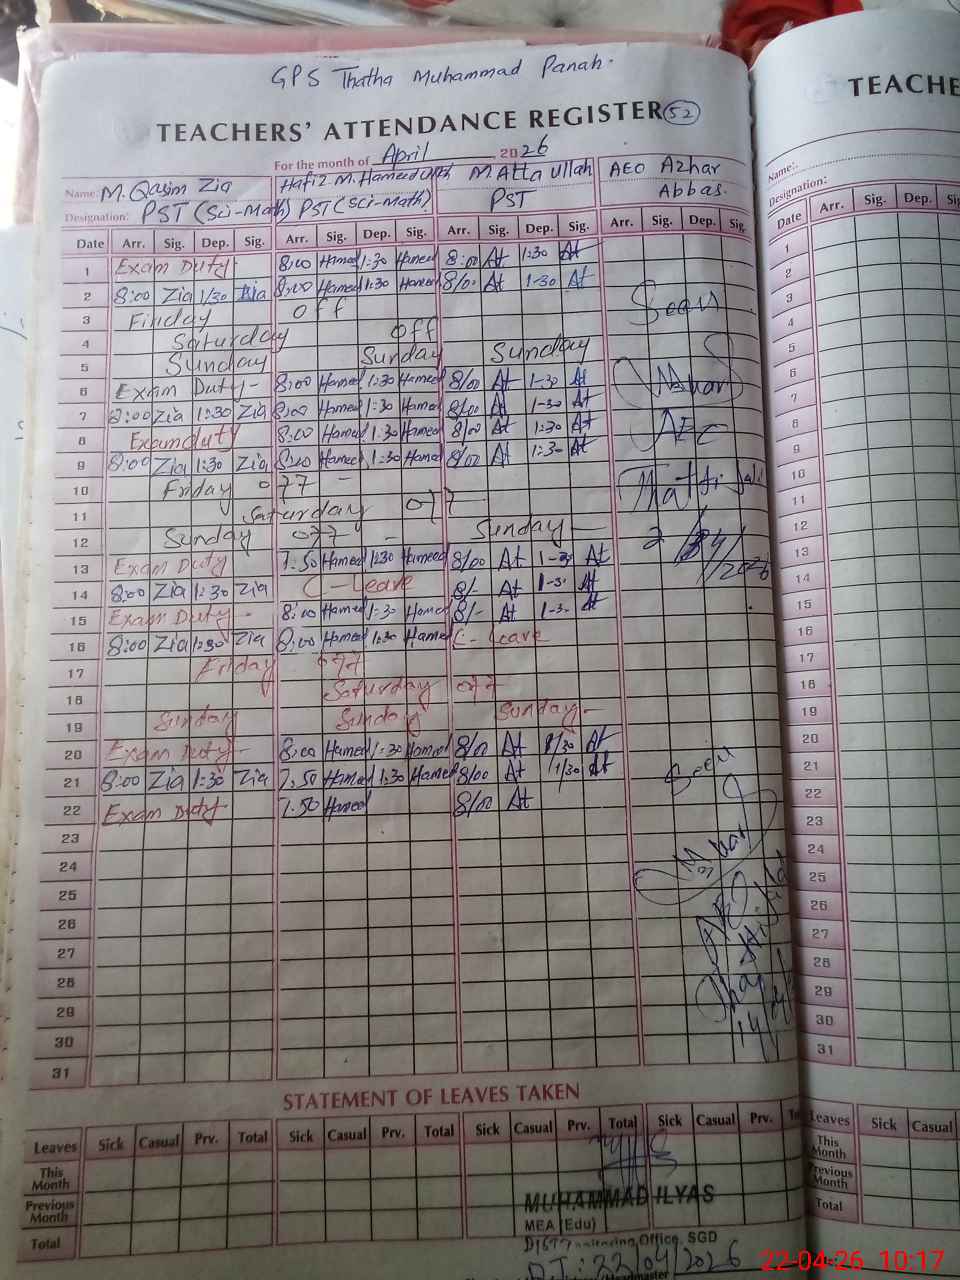 GPS Thatha Muhammad Panah.
TEACHERS' ATTENDANCE REGISTER 52
For the month of April 2026
Name: M. Qasim Zia Hafiz M. Hameed M Atta Ullah AEO Azhar Abbas.
Designation: PST (Sci-Math) PST (Sci-Math) PST
Date Arr. Sig. Dep. Sig. Arr. Sig. Dep. Sig. Arr. Sig. Dep. Sig. Arr. Sig. Dep. Sig.
1 Exam Duty- 8:00 Hamed 1:30 Hamed 8:00 At 1:30 At
2 8:00 Zia 1/30 Zia 8:00 Hamed 1:30 Hamed 8/00 At 1-30 At
3 Friday off
4 Saturday off
5 Sunday Sunday Sunday
6 Exam Duty- 8:00 Hamed 1:30 Hamed 8/00 At 1-30 At
7 8:00 Zia 1:30 Zia 8:00 Hamed 1:30 Hamed 8/00 At 1-30 At
8 Exam duty 8:00 Hamed 1:30 Hamed 8/00 At 1:30 At
9 8:00 Zia 1:30 Zia 8:00 Hamed 1:30 Hamed 8/00 At 1:30 At
10 Friday off -
11 Saturday off
12 Sunday off - Sunday -
13 Exam Duty 7:50 Hamed 1:30 Hameed 8/00 At 1-30 At
14 8:00 Zia 1:30 Zia C-Leave 8/- At 1-3- At
15 Exam Duty- 8:00 Hamed 1:30 Hamed 8/- At 1-3- At
16 8:00 Zia 1:30 Zia 8:00 Hamed 1:30 Hamed C-Leave
17 Friday off
18 Saturday off
19 Sunday Sunday Sunday-
20 Exam Duty- 8:00 Hamed 1:30 Hamed 8/00 At 1/30 At
21 8:00 Zia 1:30 Zia 7:50 Hamed 1:30 Hamed 8/00 At 1/30 At
22 Exam Duty 7:50 Hamed 8/00 At
23
24
25
26
27
28
29
30
31
Seen
Azhar
AEO
Seen
Azhar
AEO
STATEMENT OF LEAVES TAKEN
Leaves Sick Casual Prv. Total Sick Casual Prv. Total Sick Casual Prv. Total Sick Casual Prv.
This Month
Previous Month
Total
MUHAMMAD ILYAS
MEA (Edu)
Office, SGD
DT: 22/04/2026
TEACHE
Name:
Designation:
Date Arr. Sig. Dep.
1
2
3
4
5
6
7
8
9
10
11
12
13
14
15
16
17
18
19
20
21
22
23
24
25
26
27
28
29
30
31
Leaves Sick Casual
This Month
Previous Month
Total
22-04-26 10:17